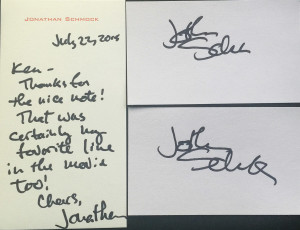 JONATHAN SCHMOCK
July 22, 2008
Ken -
Thanks for
the nice note!
That was
certainly my
favorite line
in the movie
too!
Cheers,
Jonathan